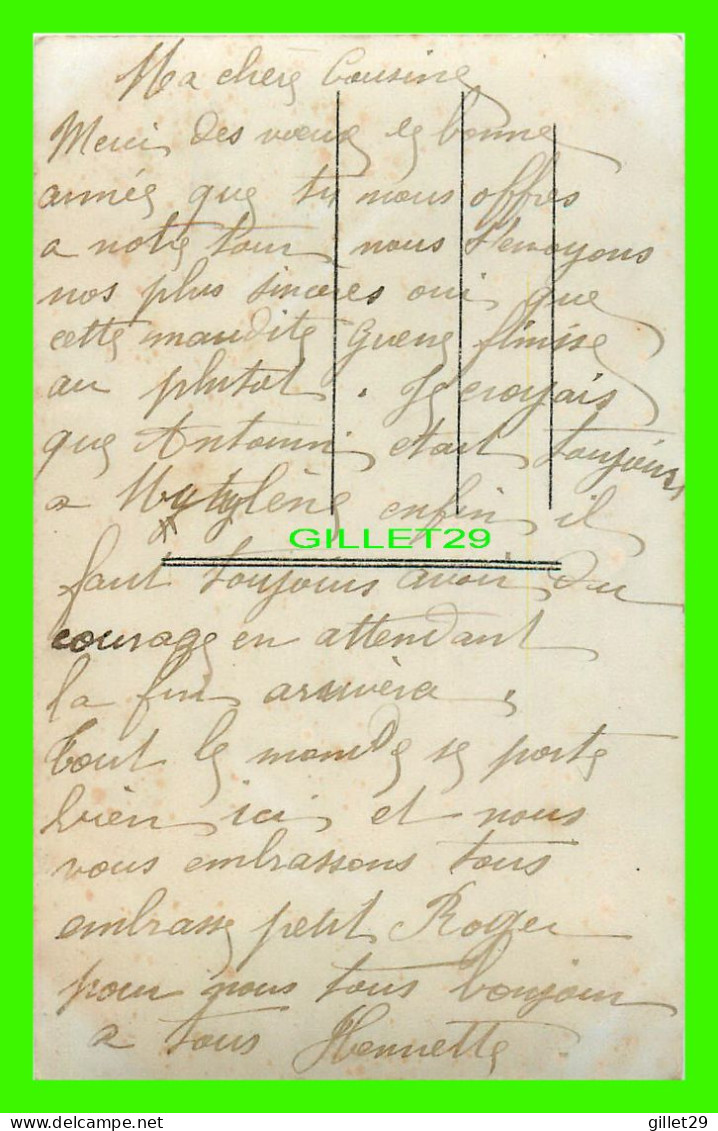 Ma chère Cousine
Merci des vœux de bonne
année que tu nous offres
a notre tour nous t'envoyons
nos plus sincères oui que
cette maudite guerre finisse
au plutot. Je croyais
que Antonin etait toujours
a Mytylène enfin il
GILLET29
faut toujours avoir du
courage en attendant
la fin arrivera.
Tout le monde se porte
bien ici et nous
vous embrassons tous
embrasse petit Roger
pour nous tous bonjour
a tous Henriette
gillet29